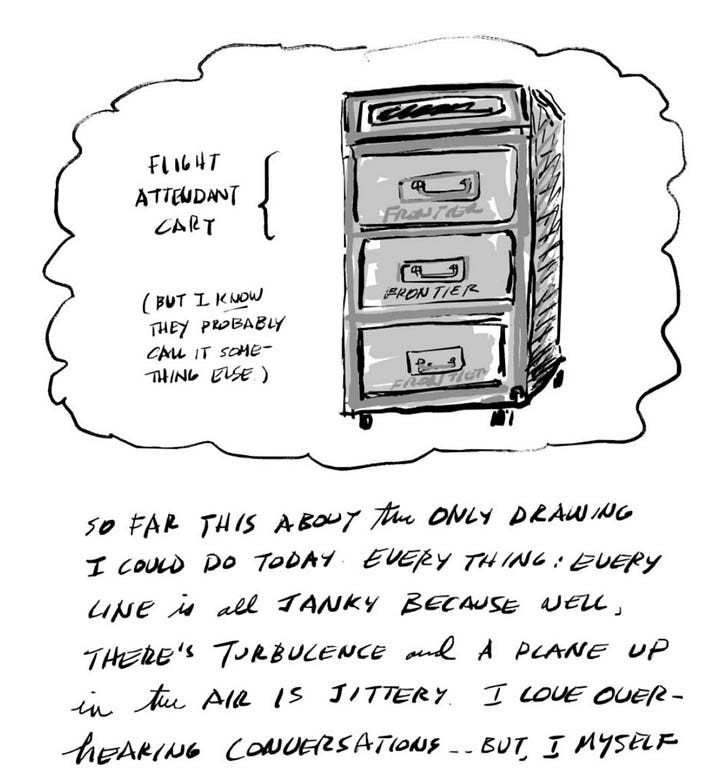 clean
FLIGHT
ATTENDANT
CART
(BUT I KNOW
THEY PROBABLY
CALL IT SOME-
THING ELSE.)
FRONTIER
FRONTIER
FRONTIER
SO FAR THIS ABOUT the ONLY DRAWING
I COULD DO TODAY. EVERY THING: EVERY
LINE is all JANKY BECAUSE WELL,
THERE'S TURBULENCE and A PLANE UP
in the AIR IS JITTERY. I LOVE OVER-
HEARING CONVERSATIONS... BUT, I MYSELF